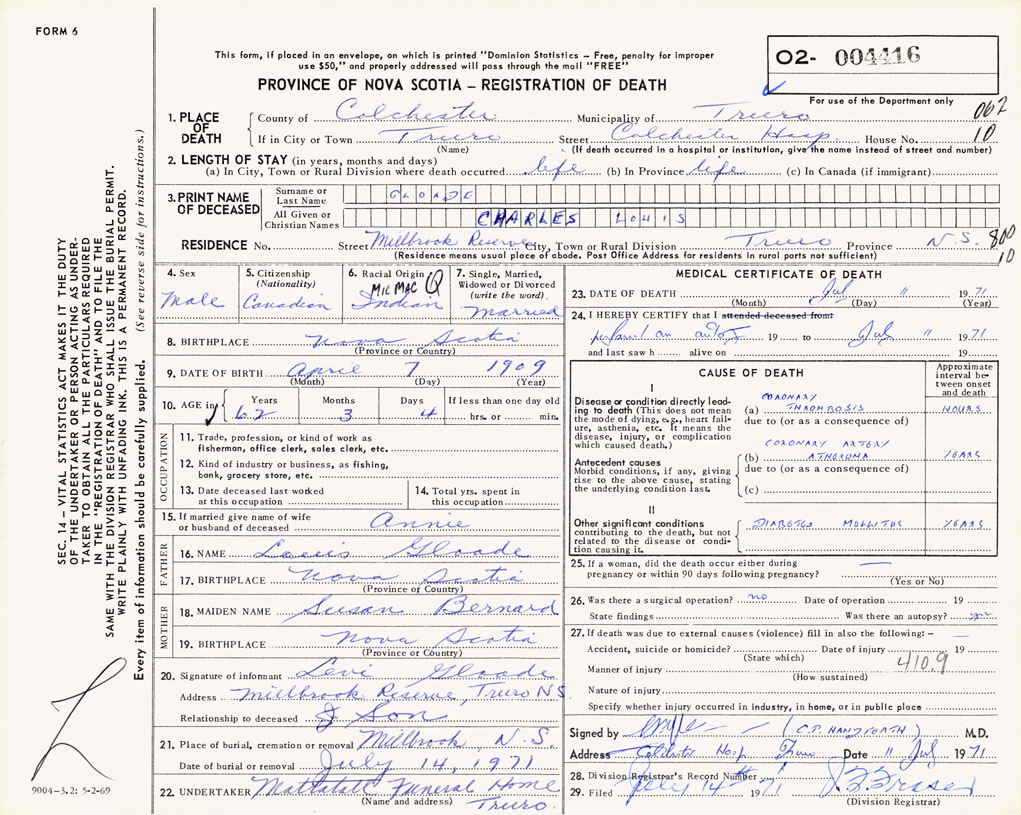 FORM 6
This form, if placed in an envelope, on which is printed "Dominion Statistics – Free, penalty for improper
use $50," and properly addressed will pass through the mail "FREE"
PROVINCE OF NOVA SCOTIA – REGISTRATION OF DEATH
O2- 004416
For use of the Department only
SEC. 14 – VITAL STATISTICS ACT MAKES IT THE DUTY
OF THE UNDERTAKER OR PERSON ACTING AS UNDER-
TAKER TO OBTAIN ALL THE PARTICULARS REQUIRED
IN THE "REGISTRATION OF DEATH" AND TO FILE THE
SAME WITH THE DIVISION REGISTRAR WHO SHALL ISSUE THE BURIAL PERMIT.
WRITE PLAINLY WITH UNFADING INK. THIS IS A PERMANENT RECORD.
Every item of information should be carefully supplied. (See reverse side for instructions.)
1. PLACE OF DEATH
County of Colchester Municipality of Truro 062
If in City or Town Truro Street Colchester Hosp House No. 10
(Name) (If death occurred in a hospital or institution, give the name instead of street and number)
2. LENGTH OF STAY (in years, months and days)
(a) In City, Town or Rural Division where death occurred life (b) In Province life (c) In Canada (if immigrant)
3. PRINT NAME OF DECEASED
Surname or Last Name GLOADE
All Given or Christian Names CHARLES LOUIS
RESIDENCE No. Street Millbrook Reserve City, Town or Rural Division Truro Province N.S. 800
(Residence means usual place of abode. Post Office Address for residents in rural parts not sufficient) 10
4. Sex Male
5. Citizenship (Nationality) Canadian
6. Racial Origin MICMAC Indian
7. Single, Married, Widowed or Divorced (write the word) Married
8. BIRTHPLACE Nova Scotia
(Province or Country)
9. DATE OF BIRTH April 7 1909
(Month) (Day) (Year)
10. AGE in Years Months Days If less than one day old
62 3 4 hrs. or min.
OCCUPATION
11. Trade, profession, or kind of work as
fisherman, office clerk, sales clerk, etc.
12. Kind of industry or business, as fishing,
bank, grocery store, etc.
13. Date deceased last worked
at this occupation
14. Total yrs. spent in
this occupation
15. If married give name of wife
or husband of deceased Annie
FATHER
16. NAME Louis Gloade
17. BIRTHPLACE Nova Scotia
(Province or Country)
MOTHER
18. MAIDEN NAME Susan Bernard
19. BIRTHPLACE Nova Scotia
(Province or Country)
20. Signature of informant Levi Gloade
Address Millbrook Reserve, Truro NS
Relationship to deceased Son
21. Place of burial, cremation or removal Millbrook, N.S.
Date of burial or removal July 14, 1971
22. UNDERTAKER Mattatall Funeral Home
(Name and address) Truro.
9004-3.2: 5-2-69
MEDICAL CERTIFICATE OF DEATH
23. DATE OF DEATH Jul 11 1971
(Month) (Day) (Year)
24. I HEREBY CERTIFY that I attended deceased from:
19 to Jul 11 1971
and last saw h alive on 19
CAUSE OF DEATH
Approximate interval between onset and death
I
Disease or condition directly lead-
ing to death (This does not mean
the mode of dying, e.g., heart fail-
ure, asthenia, etc. It means the
disease, injury, or complication
which caused death.)
CORONARY
(a) THROMBOSIS HOURS
due to (or as a consequence of)
CORONARY ARTERY
(b) ATHEROMA YEARS
due to (or as a consequence of)
(c)
Antecedent causes
Morbid conditions, if any, giving
rise to the above cause, stating
the underlying condition last.
II
Other significant conditions
contributing to the death, but not
related to the disease or condi-
tion causing it.
DIABETES MELLITUS YEARS
25. If a woman, did the death occur either during
pregnancy or within 90 days following pregnancy? —
(Yes or No)
26. Was there a surgical operation? no Date of operation 19
State findings Was there an autopsy? yes
27. If death was due to external causes (violence) fill in also the following: – —
Accident, suicide or homicide? Date of injury 19
(State which) 410.9
Manner of injury
(How sustained)
Nature of injury
Specify whether injury occurred in industry, in home, or in public place
Signed by (C.P. HANDFORTH) M.D.
Address Colchester Hosp Truro Date 11 Jul 1971
28. Division Registrar's Record Number
29. Filed July 14th 1971
(Division Registrar)